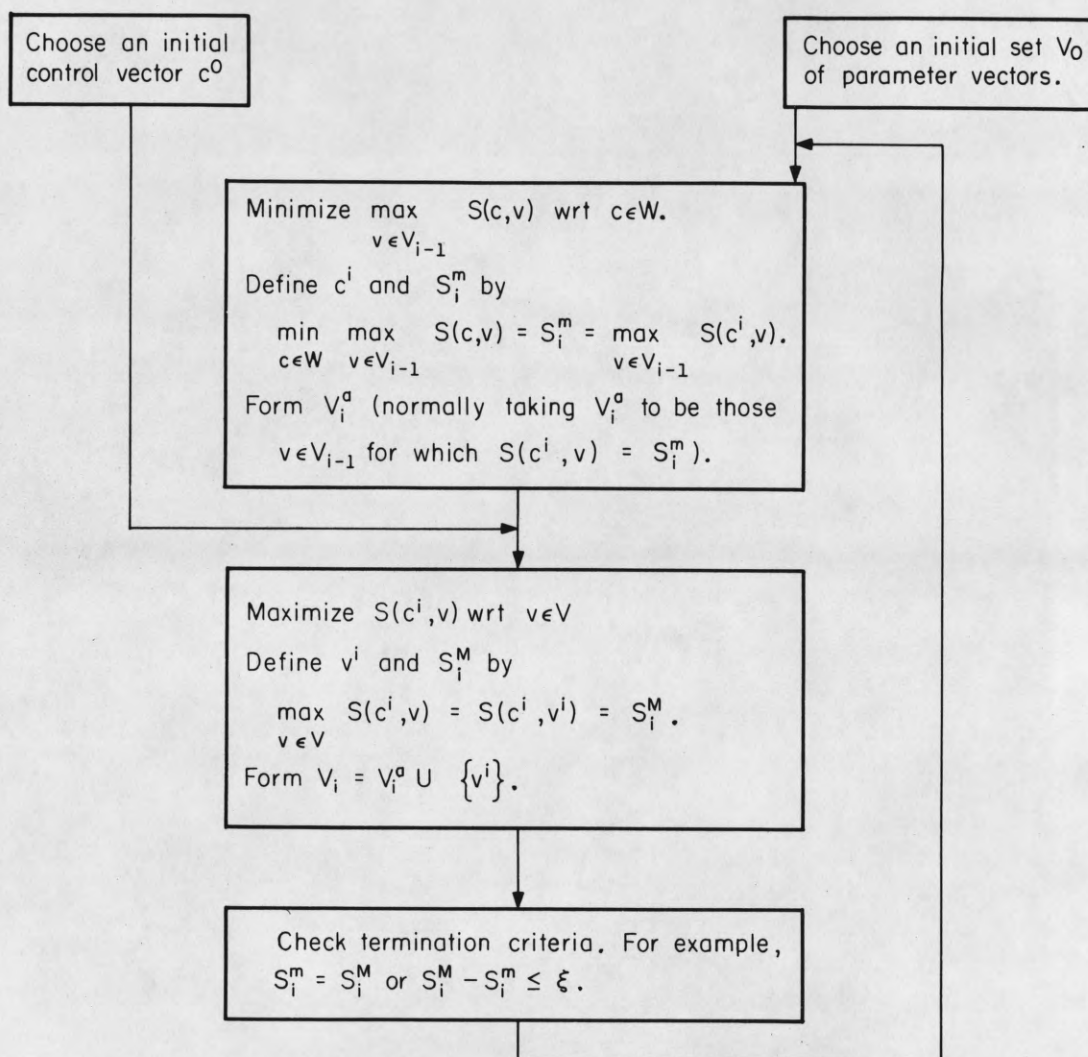 Choose an initial
control vector c⁰
Choose an initial set V₀
of parameter vectors.
Minimize max S(c,v) wrt c∈W.
v∈Vᵢ₋₁
Define cⁱ and Sᵢᵐ by
min max S(c,v) = Sᵢᵐ = max S(cⁱ,v).
c∈W v∈Vᵢ₋₁ v∈Vᵢ₋₁
Form Vᵢᵃ (normally taking Vᵢᵃ to be those
v∈Vᵢ₋₁ for which S(cⁱ,v) = Sᵢᵐ).
Maximize S(cⁱ,v) wrt v∈V
Define vⁱ and Sᵢᴹ by
max S(cⁱ,v) = S(cⁱ,vⁱ) = Sᵢᴹ.
v∈V
Form Vᵢ = Vᵢᵃ U {vⁱ}.
Check termination criteria. For example,
Sᵢᵐ = Sᵢᴹ or Sᵢᴹ – Sᵢᵐ ≤ ξ.